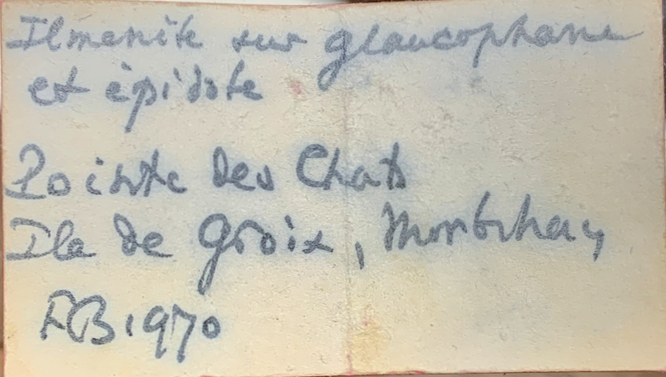 Ilmenite sur glaucophane
et épidote
Pointe des Chats
Ile de Groix, Morbihan
FB 1970